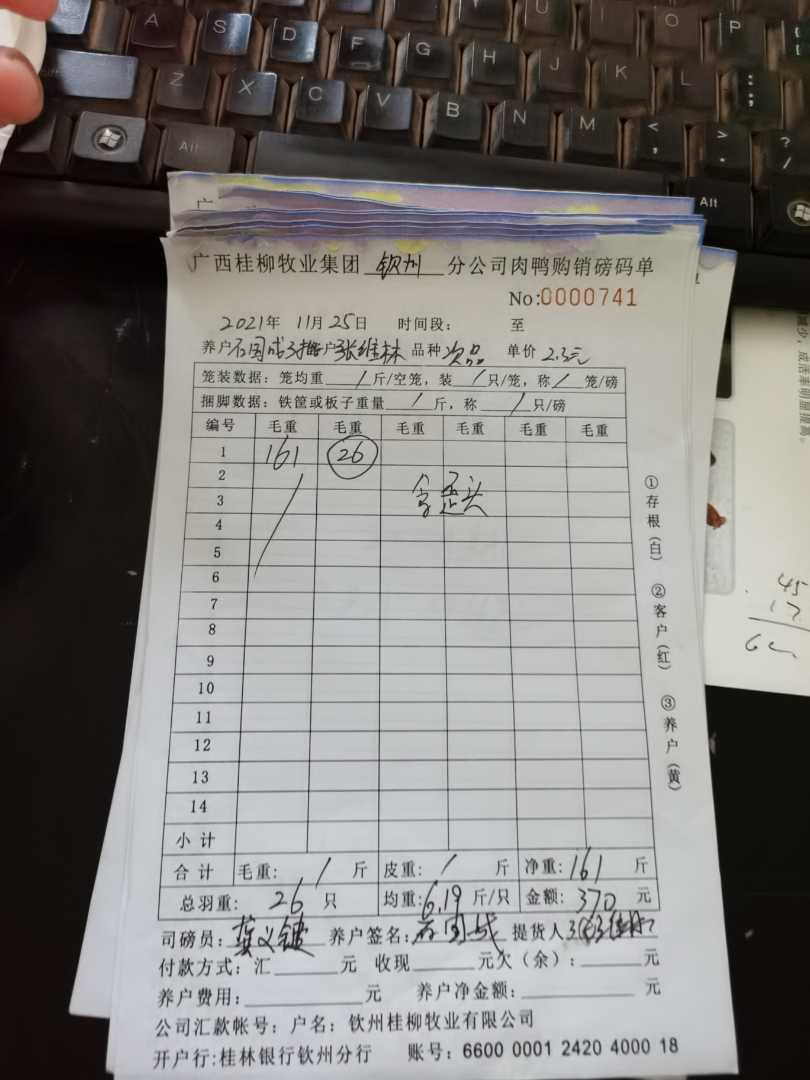 A S D F G H J K L U I O P
Z X C V B N M
Alt
Alt
广西桂柳牧业集团 钦州 分公司肉鸭购销磅码单
No:0000741
2021年 11月25日 时间段: 至
养户石国成 户张维林 品种 次品 单价 2.3元
笼装数据: 笼均重 / 斤/空笼, 装 / 只/笼, 称 / 笼/磅
捆脚数据: 铁筐或板子重量 / 斤, 称 / 只/磅
编号 毛重 毛重 毛重 毛重 毛重 毛重
1 161 26
2
3 含歪头
4
5
6
7
8
9
10
11
12
13
14
小计
合计 毛重: / 斤 皮重: / 斤 净重: 161 斤
总羽重: 26 只 均重: 6.19 斤/只 金额: 370 元
司磅员: 养户签名: 石国成 提货人
付款方式: 汇 元 收现 元欠(余): 元
养户费用: 元 养户净金额: 元
公司汇款帐号: 户名: 钦州桂柳牧业有限公司
开户行:桂林银行钦州分行 账号: 6600 0001 2420 4000 18
①存根(白) ②客户(红) ③养户(黄)
减少,成活率明显提高。
45
17